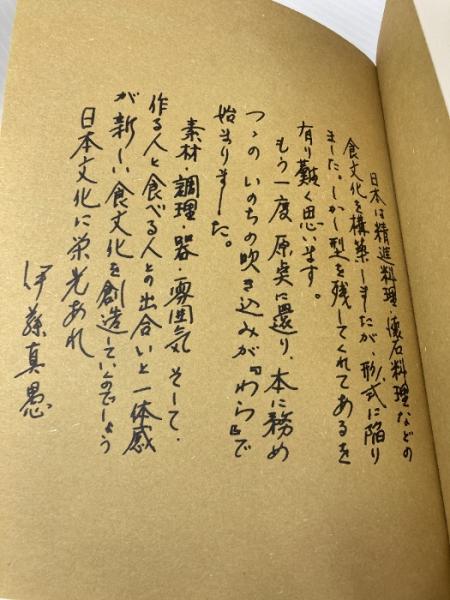 日本は精進料理・懐石料理などの
食文化を構築しましたが、形式に陥り
ました。しかし型を残してくれてあるを
有り難く思います。
もう一度原点に還り、本に務め
つゝのいのちの吹き込みが『わら』で
始まりました。
素材・調理・器・雰囲気 そして、
作る人と食べる人との出合いと一体感
が新しい食文化を創造していくのでしょう
日本文化に栄光あれ
伊藤真愚